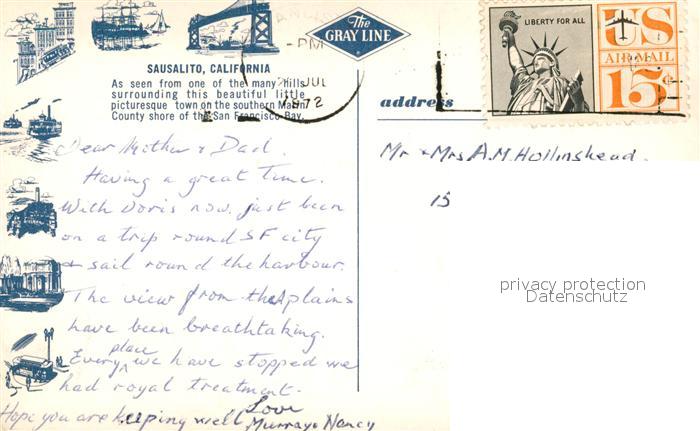 The
GRAY LINE
SAUSALITO, CALIFORNIA
As seen from one of the many hills
surrounding this beautiful little
picturesque town on the southern Marin
County shore of the San Francisco Bay.
PM
JUL
1972
LIBERTY FOR ALL
US
AIR MAIL
15¢
address
Dear Mother & Dad.
Having a great time.
With Doris now. just been
on a trip round SF city
& sail round the harbour.
The view from the plains
have been breathtaking.
Every place we have stopped we
had royal treatment.
Hope you are keeping well
Love
Murray & Nancy
Mr & Mrs A.M. Hollinshead.
15
privacy protection
Datenschutz